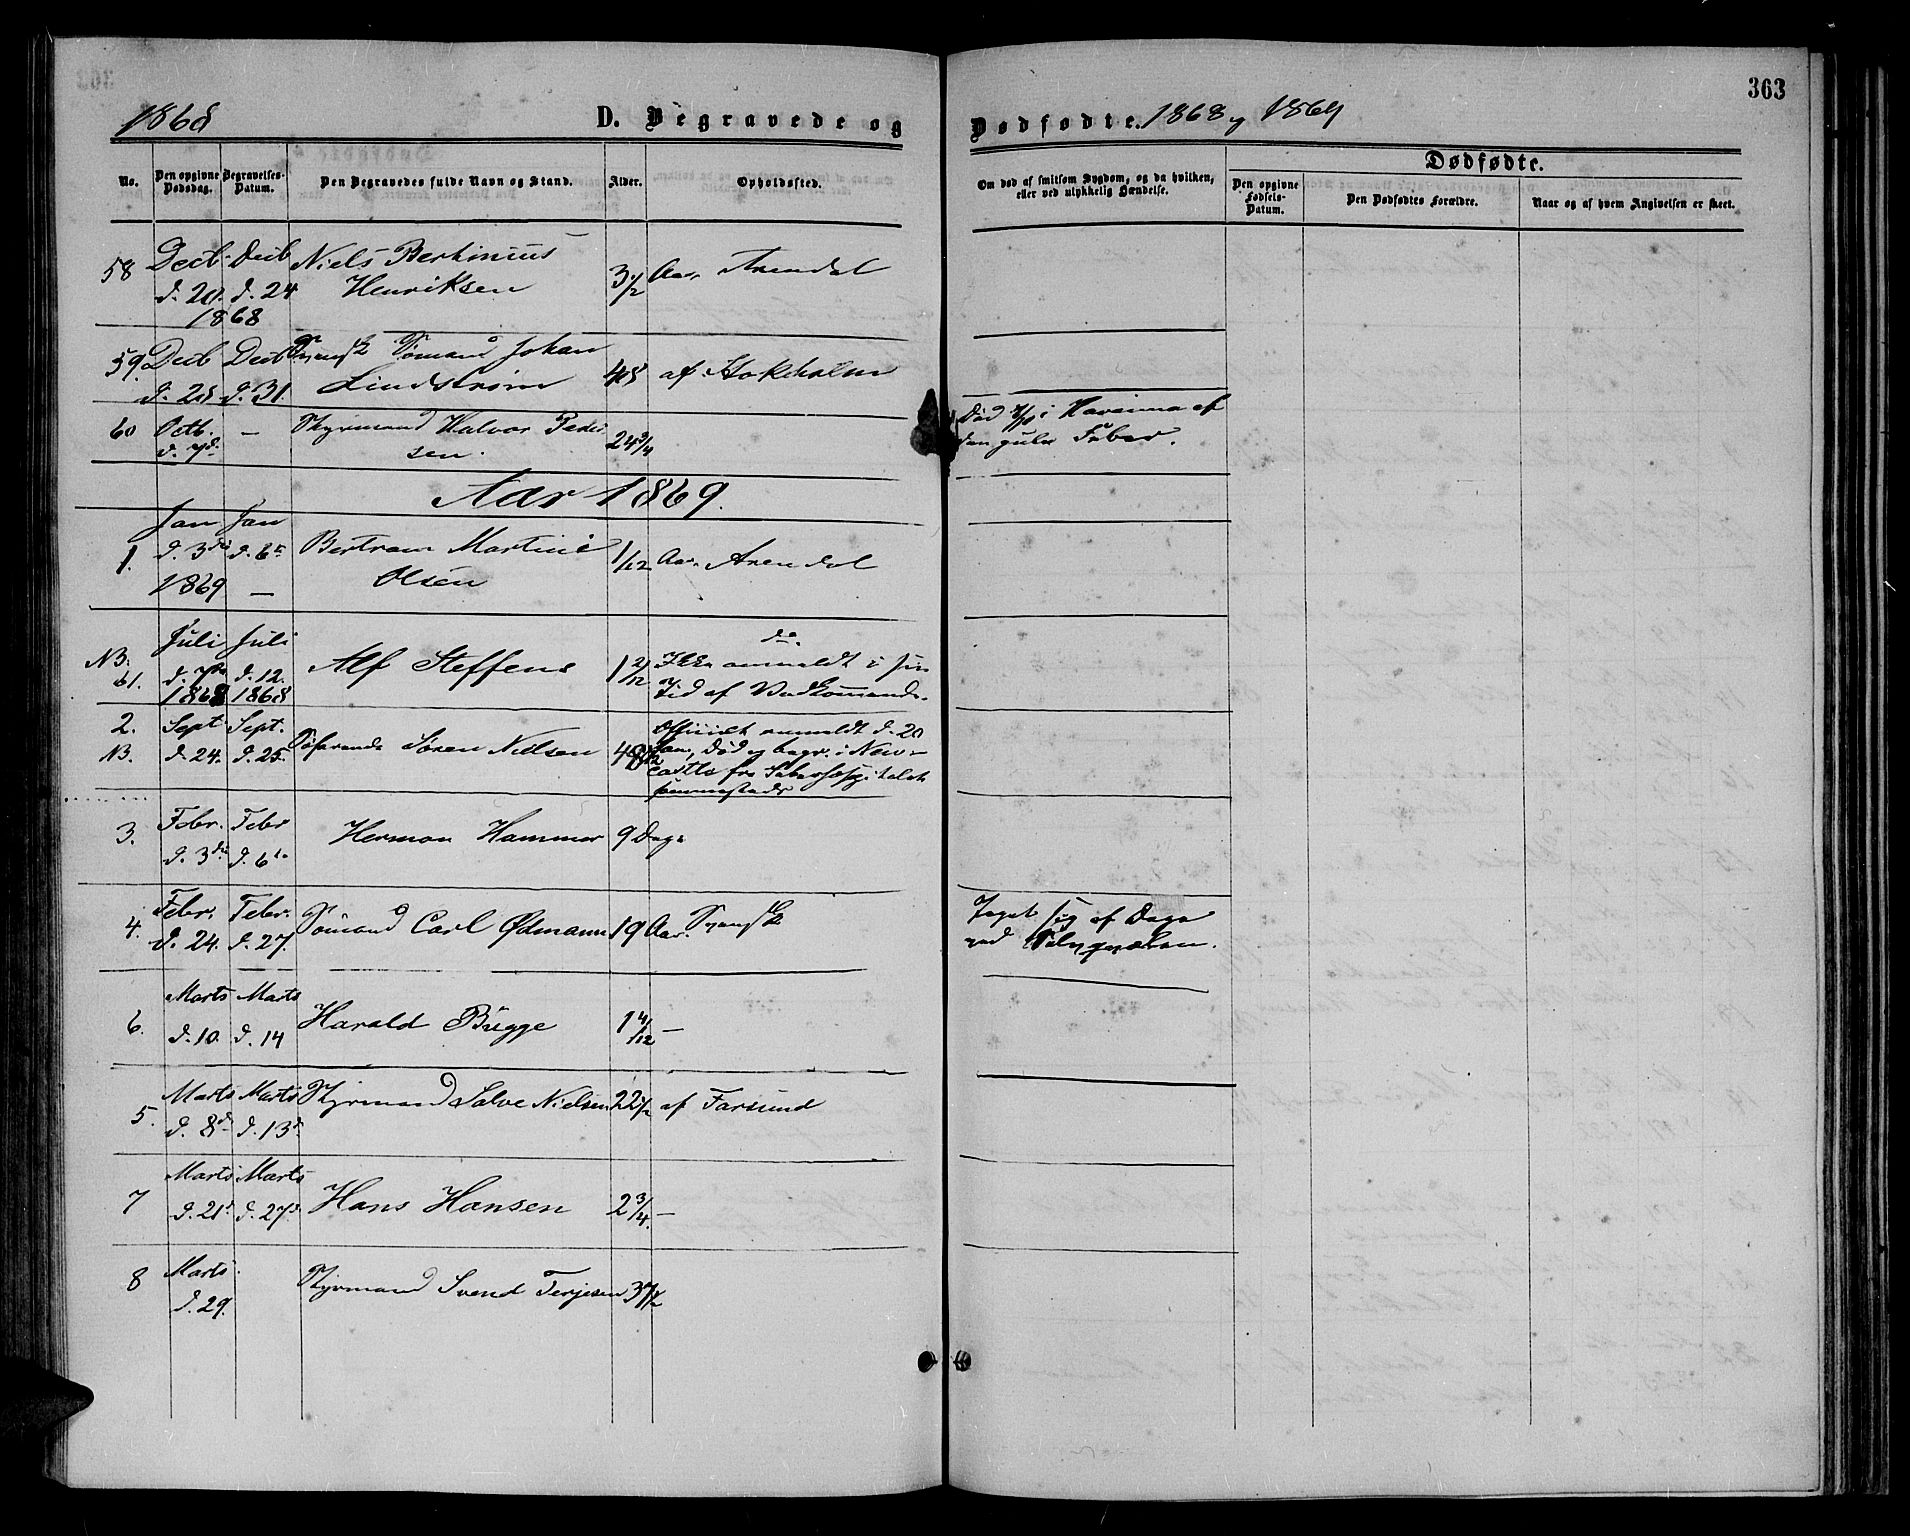 363
1868
D. Begravede og Dødfødte. 1868 og 1869
No.
Den opgivne Dødsdag.
Begravelses-Datum.
Den Begravedes fulde Navn og Stand.
Alder.
Opholdssted.
Om død af smitsom Sygdom, og da hvilken,
eller ved ulykkelig Hændelse.
Dødfødte.
Den opgivne Fødsels-Datum.
Den Dødfødtes Forældre.
Naar og af hvem Angivelsen er skeet.
58 Decb. Decb Niels Bertinius
d. 20. d. 24 Henriksen 3 1/2 Aar. Arendal
1868
59. Decb Decb Svensk Sømand Johan
d. 28 d. 31. Lindstrøm 48 af Stokholm
60 Octb. — Styrmand Halvor Peder
d. 7d. sen. 24 3/4
Død 7/10 i Havanna af
den gule Feber.
Aar 1869.
Jan Jan
1. d. 3die d. 6te Bertram Martini 1/12 Aar. Arendal
1869 — Olsen
Juli Juli do
NB. 61. d. 7de d. 12. Alf Steffens 1 2/12 Ikke anmeldt i sin
1868 1868 Tid af Vedkommende.
2. Sept. Sept. Officielt anmeldt d. 20
NB. d. 24. d. 25. Søfarende Søren Nielsen 48 Jan, Død og begr. i New-
castle fra
3. Febr. Febr Herman Hammer 9 Dage
d. 3die d. 6te
4. Febr. Febr. Sømand Carl Ødmann 19 Aar. Svensk
d. 24. d. 27.
Taget sig af Dage
ved
6. Marts Marts Harald Bugge 1 4/12 —
d. 10. d. 14
5. Marts Marts Styrmand Salve Nielsen 22 1/2 af Farsund
d. 8de d. 13de
7 Marts Marts Hans Hansen 2 3/4. —
d. 21. d. 27.
8 Marts Styrmand Svend Terjesen 37 1/2
d. 29.